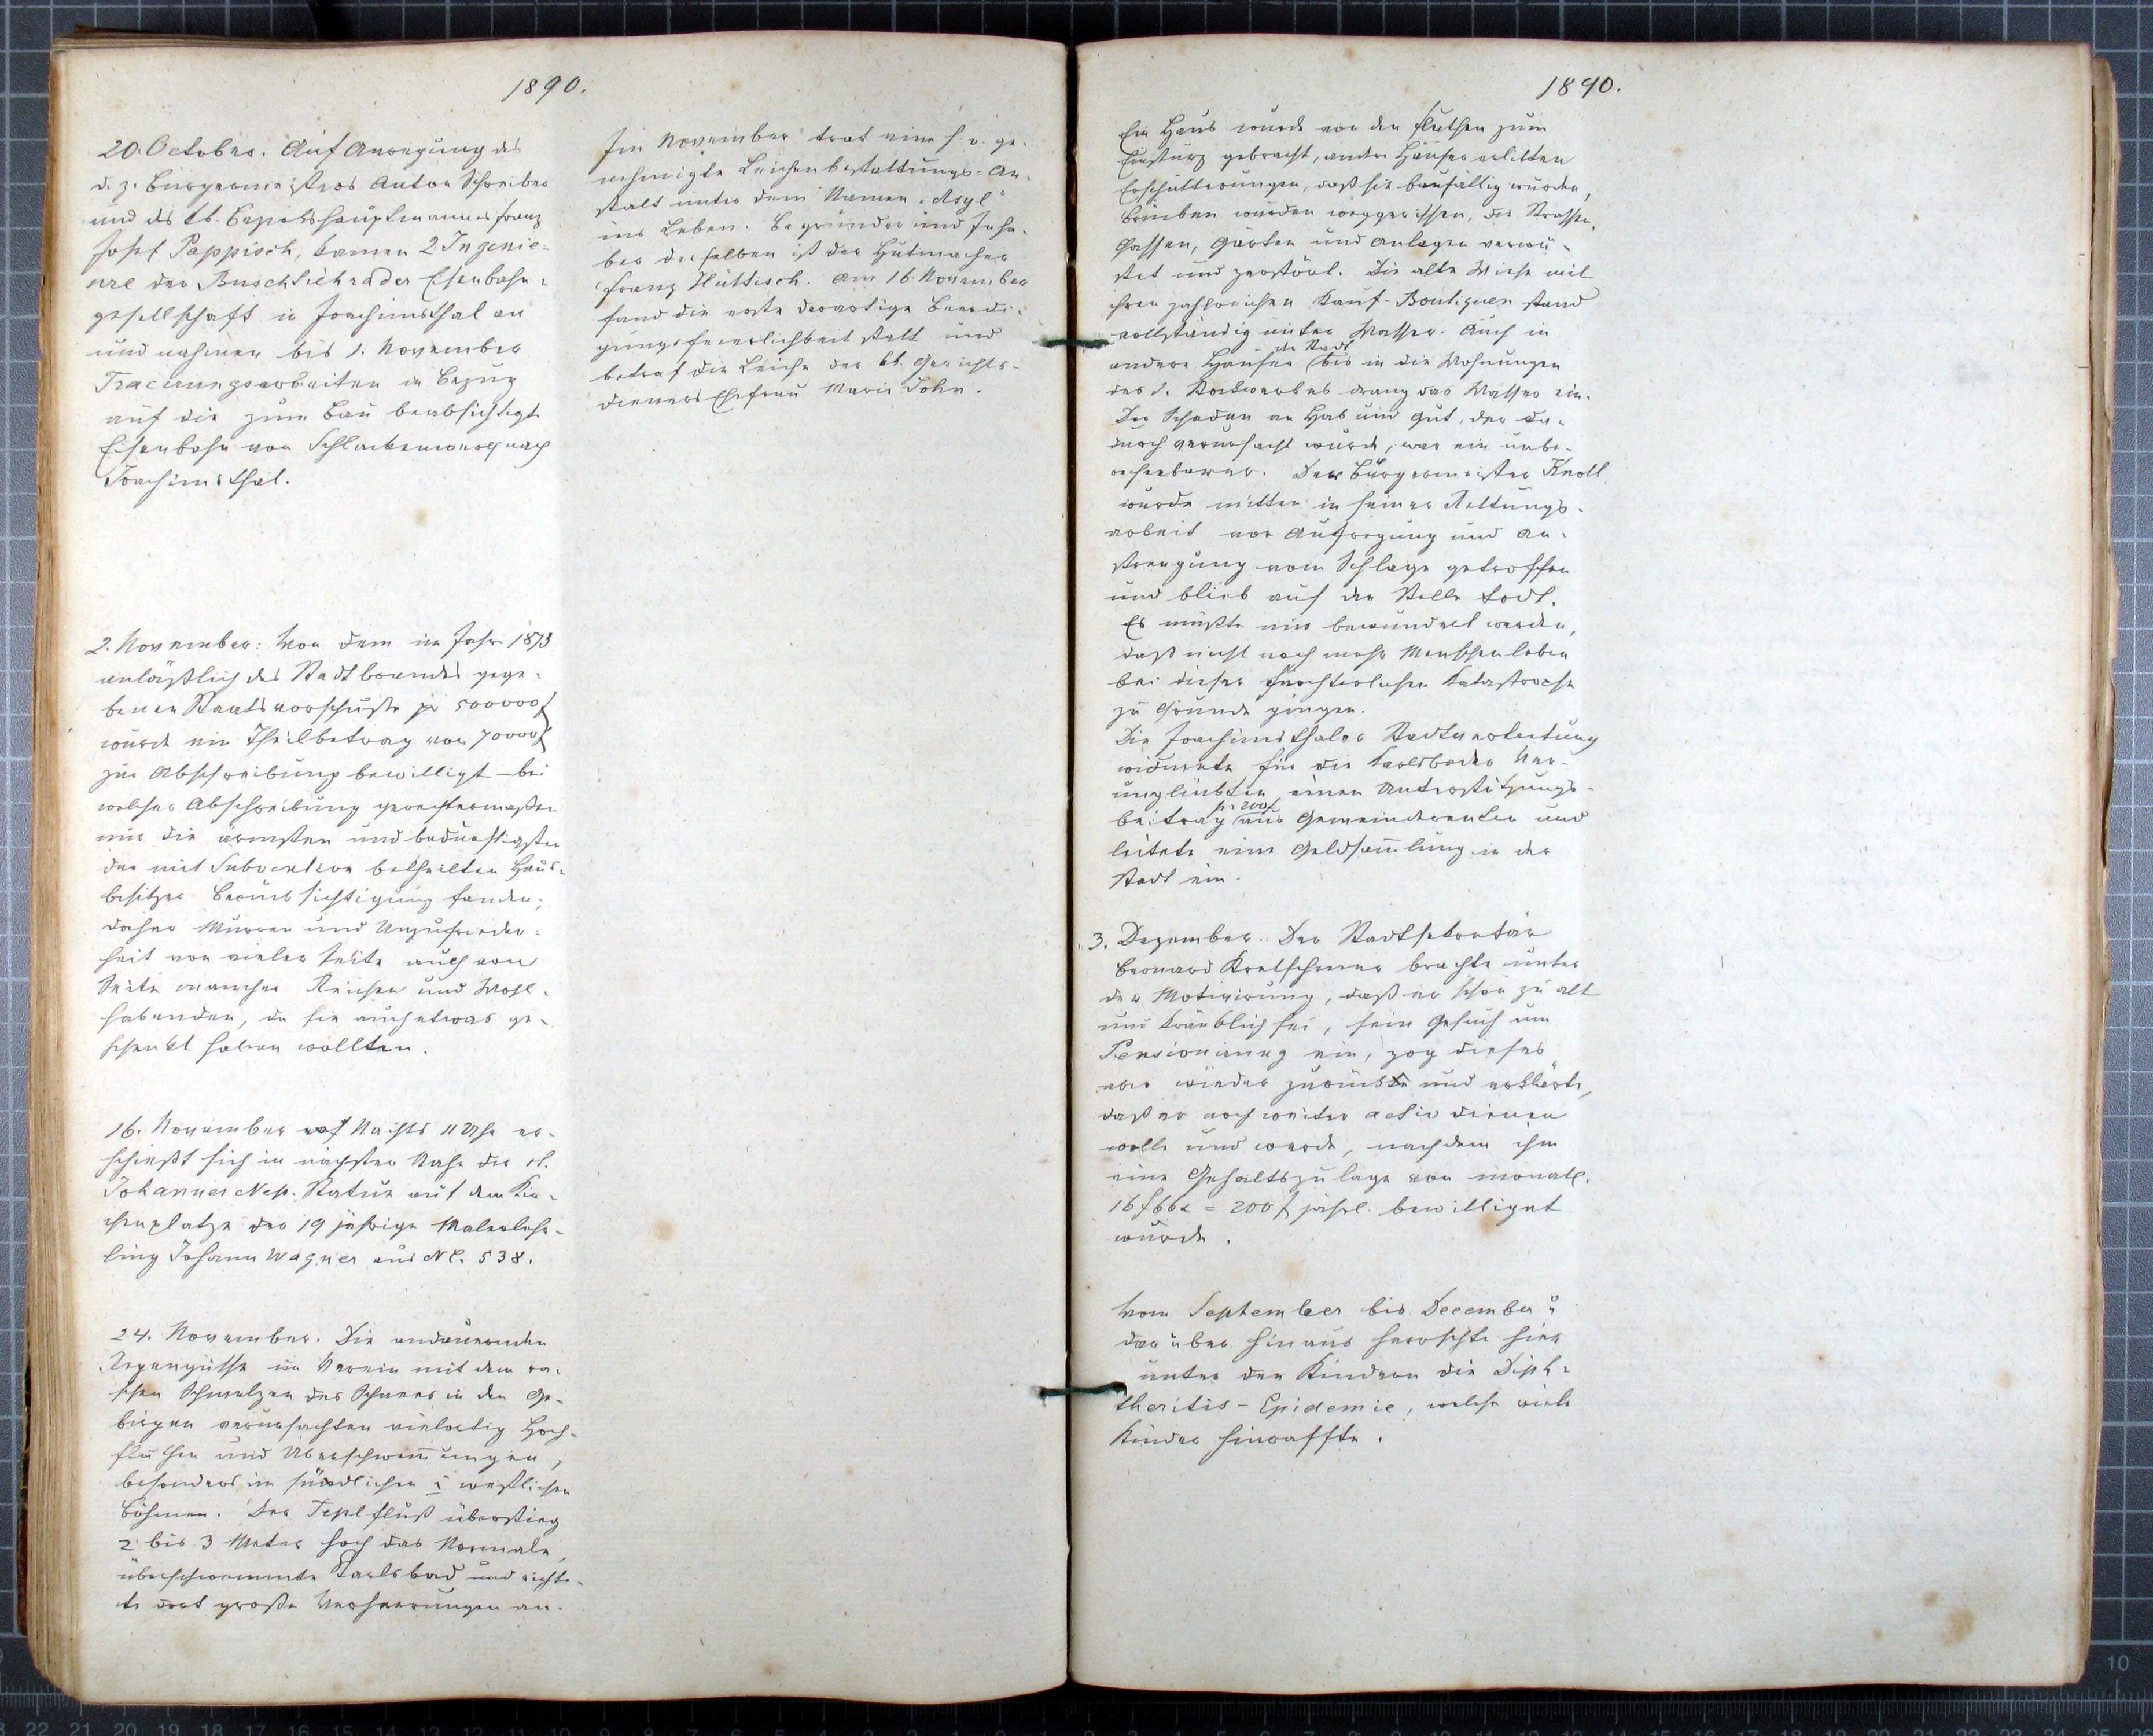 1890.
20. October. Auf Anregung des
d. z. Bürgermeisters Anton Schreiber
und des kk. Bezirkshauptmannes Franz
Josef Pappisch, kamen 2 Ingenie-
ure der Buschtiehrader Eisenbahn-
gesellschaft in Joachimsthal an
und nahmen bis 1. November
Tracirungsarbeiten in Bezug
auf die zum Bau beabsichtigte
Eisenbahn von Schlackenwerth nach
Joachimsthal.
2. November: Von dem im Jahre 1873
anläßlich des Stadtbrandes gege-
benen Staatsvorschuße pr 500000 f
wurde ein Theilbetrag von 70000 f
zur Abschreibung bewilligt – bei
welcher Abschreibung gerechtermaßen
nur die ärmsten und bedürftigsten
der mit Subvention betheilten Haus-
besitzer Berücksichtigung fanden;
daher Murren und Unzufrieden-
heit von vieler Seite auch von
Seite mancher Reichen und Wohl-
habenden, da sie auch etwas ge-
schenkt haben wollten.
16. November Nachts 11 Uhr er-
schießt sich in nächster Nähe der st.
Johannes Nep. Statue auf dem Kir-
chenplatze der 19 jährige Malerlehr-
ling Johann Wagner aus NC. 538.
24. November. Die andauernden
Regengüsse im Verein mit dem ra-
schen Schmelzen des Schnees in den Ge-
birgen verursachten vielortig Hoch-
fluthen und Überschwem̄ungen,
besonders im südlichen u westlichen
Böhmen. Der Teplfluß überstieg
2 bis 3 Meter hoch das Normale,
überschwemmte Karlsbad und richte-
te dort große Verheerungen an.
Im November trat eine h. o. ge-
nehmigte Leichenbestattungs-An-
stalt unter dem Namen „Asyl“
ins Leben. Begründer und Inha-
ber derselben ist der Hutmacher
Franz Hüttisch. Am 16. November
fand die erste derartige Beerdi-
gungsfeierlichkeit statt und
betraf die Leiche der kk. Gerichts-
dieners Ehefrau Marie John.
1890.
Ein Haus wurde von den Fluthen zum
Einsturz gebracht, andere Häuser erlitten
Erschütterungen, daß sie baufällig wurden,
Brücken wurden weggerissen, die Strassen,
Gassen, Gärten und Anlagen verwü-
stet und zerstört. Die alte Wiese mit
ihren zahlreichen Kauf-Boutiquen stand
vollständig unter Wasser. Auch in
der Stadt
andere Häuser bis in die Wohnungen
des 1. Stockwerkes drang das Wasser ein.
Der Schaden an Hab und Gut, der da-
durch verursacht wurde, war ein unbe-
rechenbarer. Der Bürgermeister Knoll
wurde mitten in seiner Rettungs-
arbeit vor Aufregung und An-
strengung vom Schlage getroffen
und blieb auf der Stelle todt.
Es mußte nur bewundert werden,
daß nicht noch mehr Menschenleben
bei dieser fürchterlichen Katastrophe
zu Grunde gingen.
Die Joachimsthaler Stadtvertretung
widmete für die Karlsbader Ver-
unglückten einen Unterstützungs-
pr 200 f
beitrag aus Gemeinderenten und
leitete eine Geldsam̄lung in der
Stadt ein.
3. Dezember. Der Stadtsekretär
Bernard Kretschmer brachte unter
der Motivirung, daß er schon zu alt
und kränklich sei, sein Gesuch um
Pensionirung ein, zog dieses
aber wieder zurück und erklärte,
daß er noch weiter activ dienen
wolle und werde, nachdem ihm
eine Gehaltszulage von monatl.
16 f 66 x = 200 f jährl. bewilliget
wurde.
Vom September bis December u
darüber hinaus herrschte hier
unter den Kindern die Diph-
theritis-Epidemie, welche viele
Kinder hinraffte.